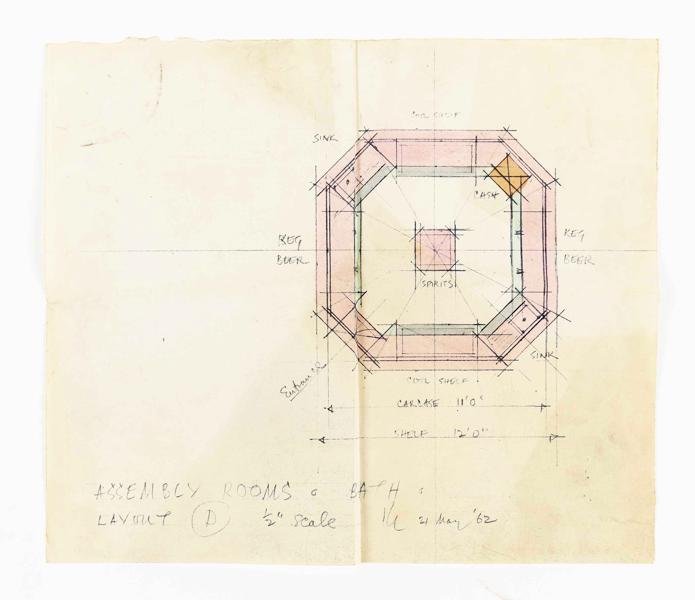 COOL SHELF
SINK
CASH
KEG
BEER
KEG
BEER
SPIRITS
SINK
Entrance
COOL SHELF
CARCASE 11'0"
SHELF 12'0"
ASSEMBLY ROOMS. BATH.
LAYOUT D ½" Scale 21 May '62